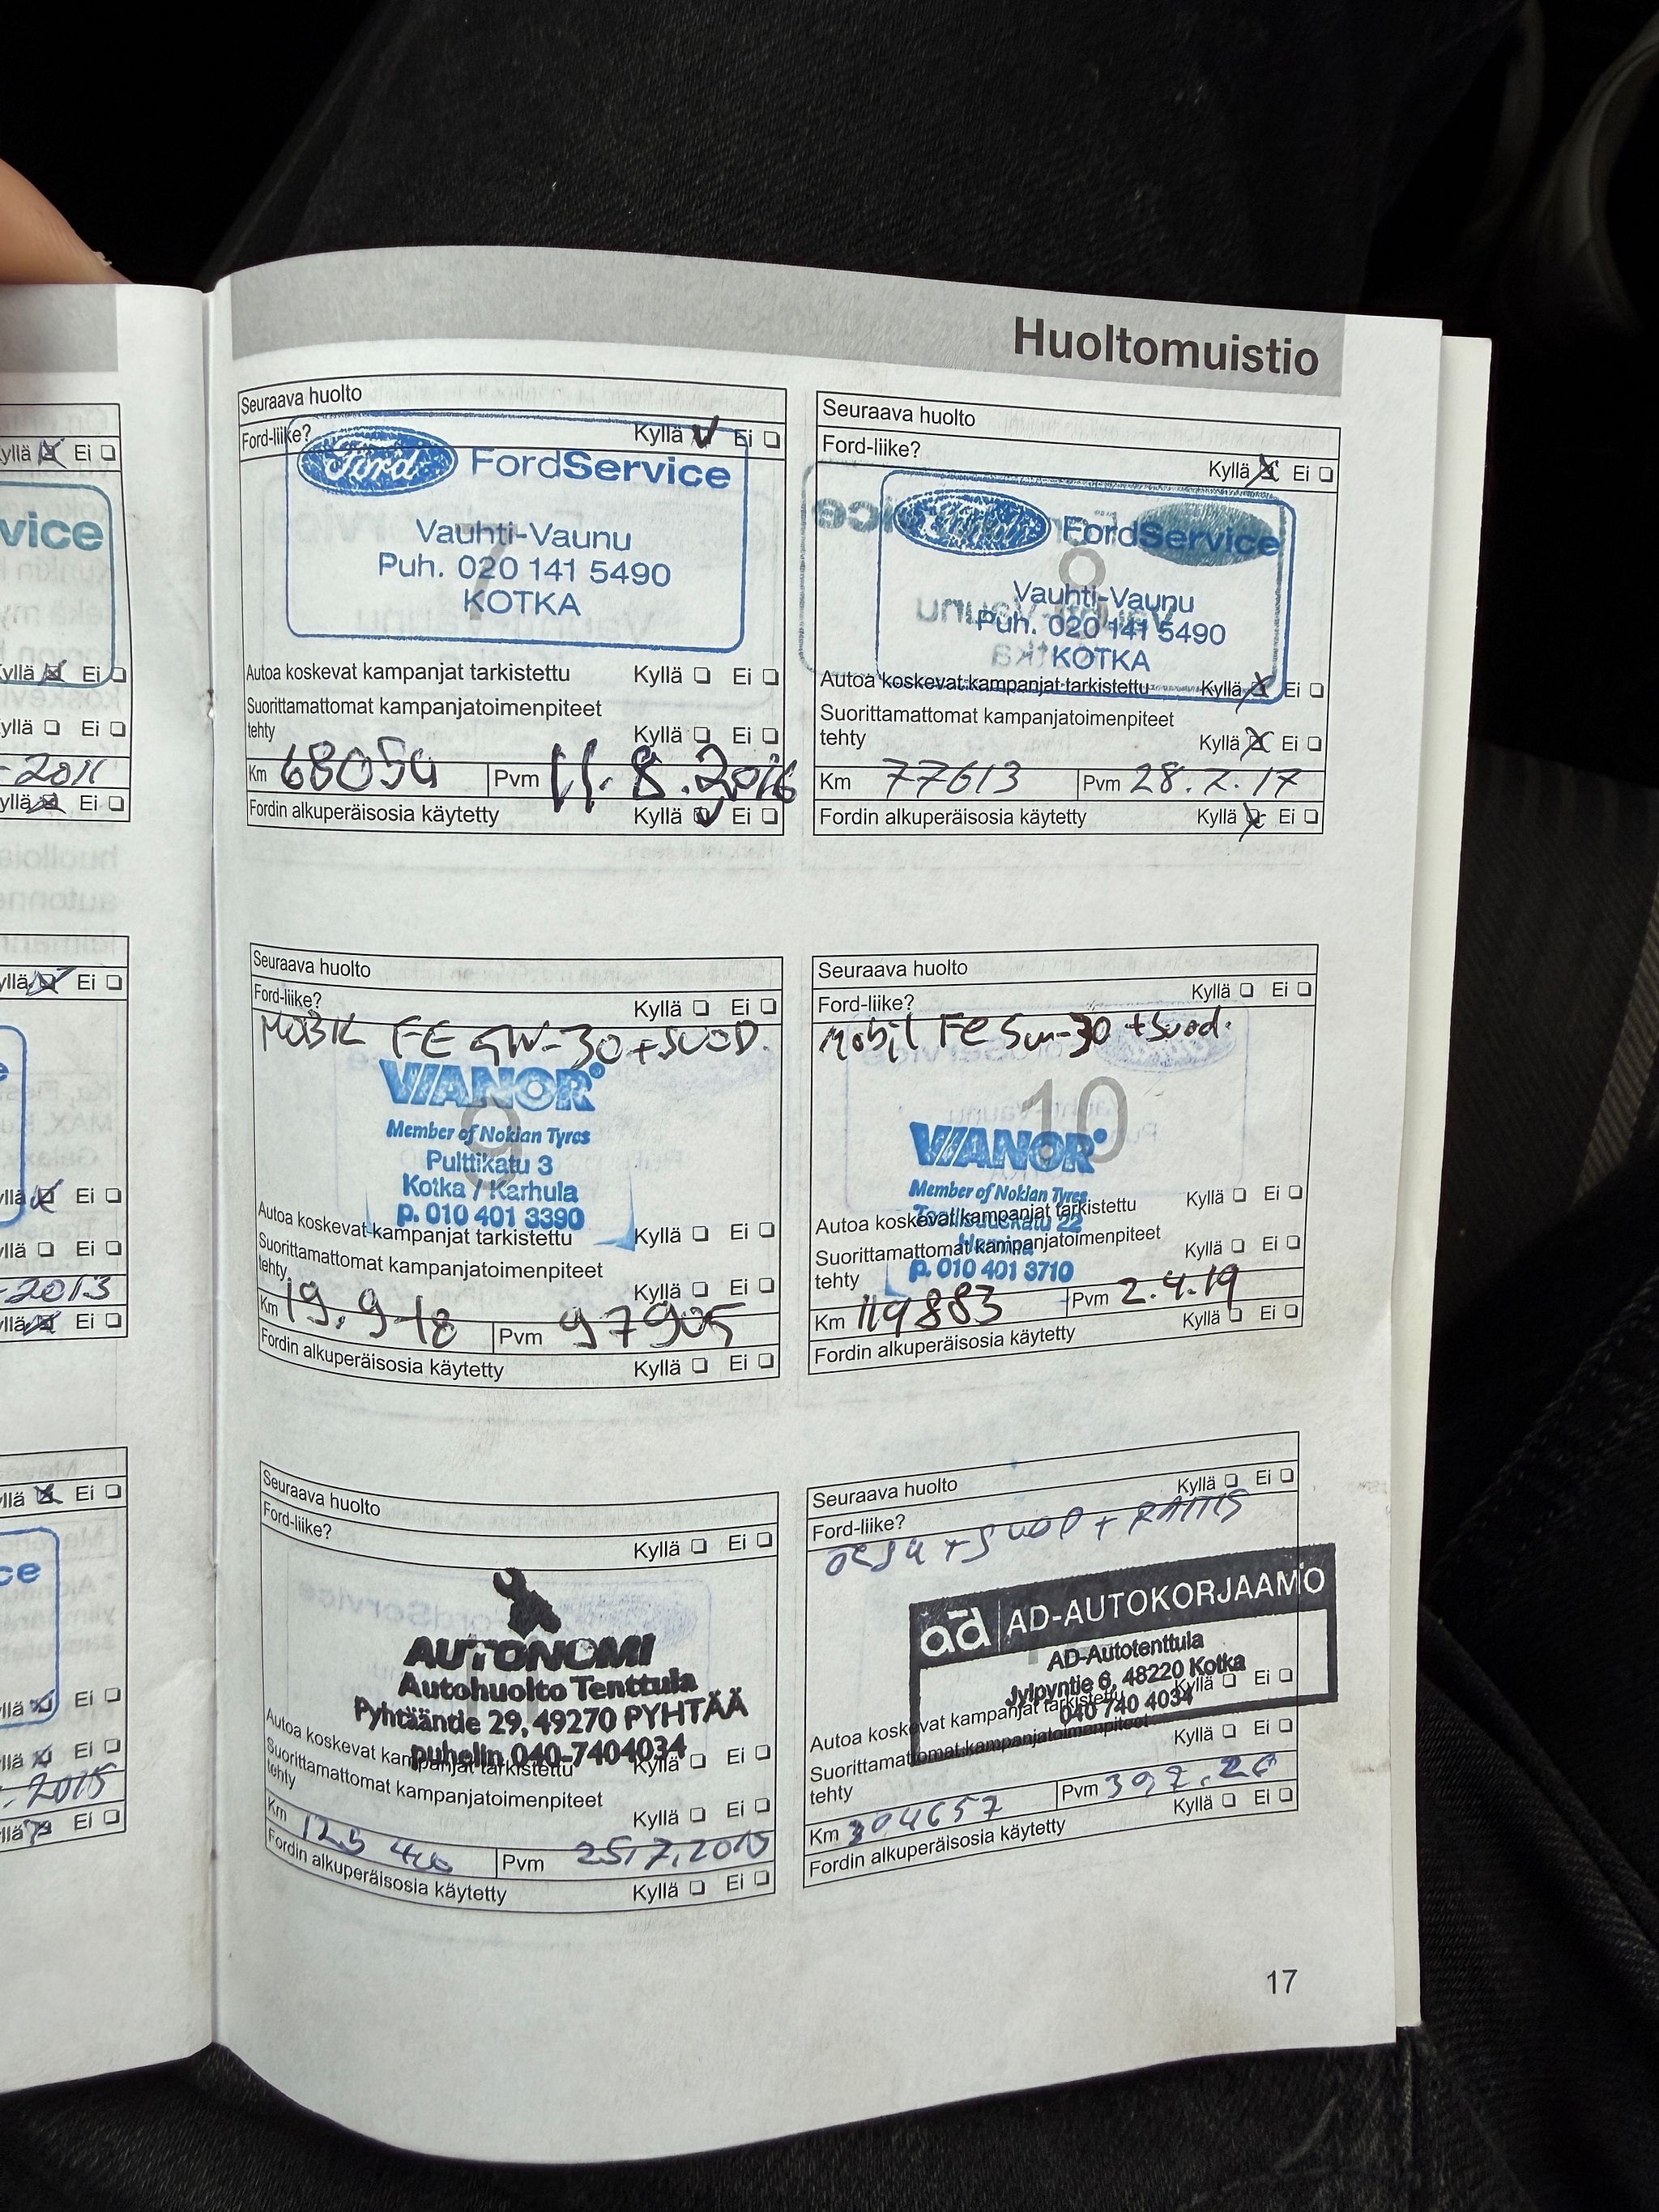 Huoltomuistio
Seuraava huolto
Ford-liike? Kyllä Ei
Ford FordService
7
Vauhti-Vaunu
Puh. 020 141 5490
KOTKA
Autoa koskevat kampanjat tarkistettu Kyllä Ei
Suorittamattomat kampanjatoimenpiteet
tehty Kyllä Ei
Km Pvm 11.8.2016
Fordin alkuperäisosia käytetty Kyllä Ei
Seuraava huolto
Ford-liike?
Kyllä Ei
FordService
8
Vauhti-Vaunu
Puh. 020 141 5490
KOTKA
Autoa koskevat kampanjat tarkistettu Kyllä Ei
Suorittamattomat kampanjatoimenpiteet
tehty Kyllä Ei
Km 77613 Pvm 28.7.17
Fordin alkuperäisosia käytetty Kyllä Ei
Seuraava huolto
Ford-liike? Kyllä Ei
FE 5W-30 + SUOD.
VIANOR
9
Member of Nokian Tyres
Pulttikatu 3
Kotka / Karhula
p. 010 401 3390
Autoa koskevat kampanjat tarkistettu Kyllä Ei
Suorittamattomat kampanjatoimenpiteet
tehty Kyllä Ei
Km 19.9.18 Pvm 97905
Fordin alkuperäisosia käytetty Kyllä Ei
Seuraava huolto
Ford-liike? Kyllä Ei
Mobil FE 5w-30 + Suod.
10
VIANOR
Member of Nokian Tyres
Teollisuuskatu 22
Hamina
p. 010 401 3710
Autoa koskevat kampanjat tarkistettu Kyllä Ei
Suorittamattomat kampanjatoimenpiteet
tehty Kyllä Ei
Km 119883 Pvm 2.4.19
Fordin alkuperäisosia käytetty Kyllä Ei
Seuraava huolto
Ford-liike?
Kyllä Ei
AUTONOMI
Autohuolto Tenttula
Pyhtääntie 29, 49270 PYHTÄÄ
puhelin 040-7404034
Autoa koskevat kampanjat tarkistettu Kyllä Ei
Suorittamattomat kampanjatoimenpiteet
tehty Kyllä Ei
Km Pvm
Fordin alkuperäisosia käytetty Kyllä Ei
Seuraava huolto
Ford-liike? Kyllä Ei
+ SUOD + RAITIS
ad AD-AUTOKORJAAMO
AD-Autotenttula
Jylpyntie 6, 48220 Kotka
040 740 4034
Autoa koskevat kampanjat tarkistettu Kyllä Ei
Suorittamattomat kampanjatoimenpiteet
tehty Kyllä Ei
Km Pvm
Fordin alkuperäisosia käytetty Kyllä Ei
17